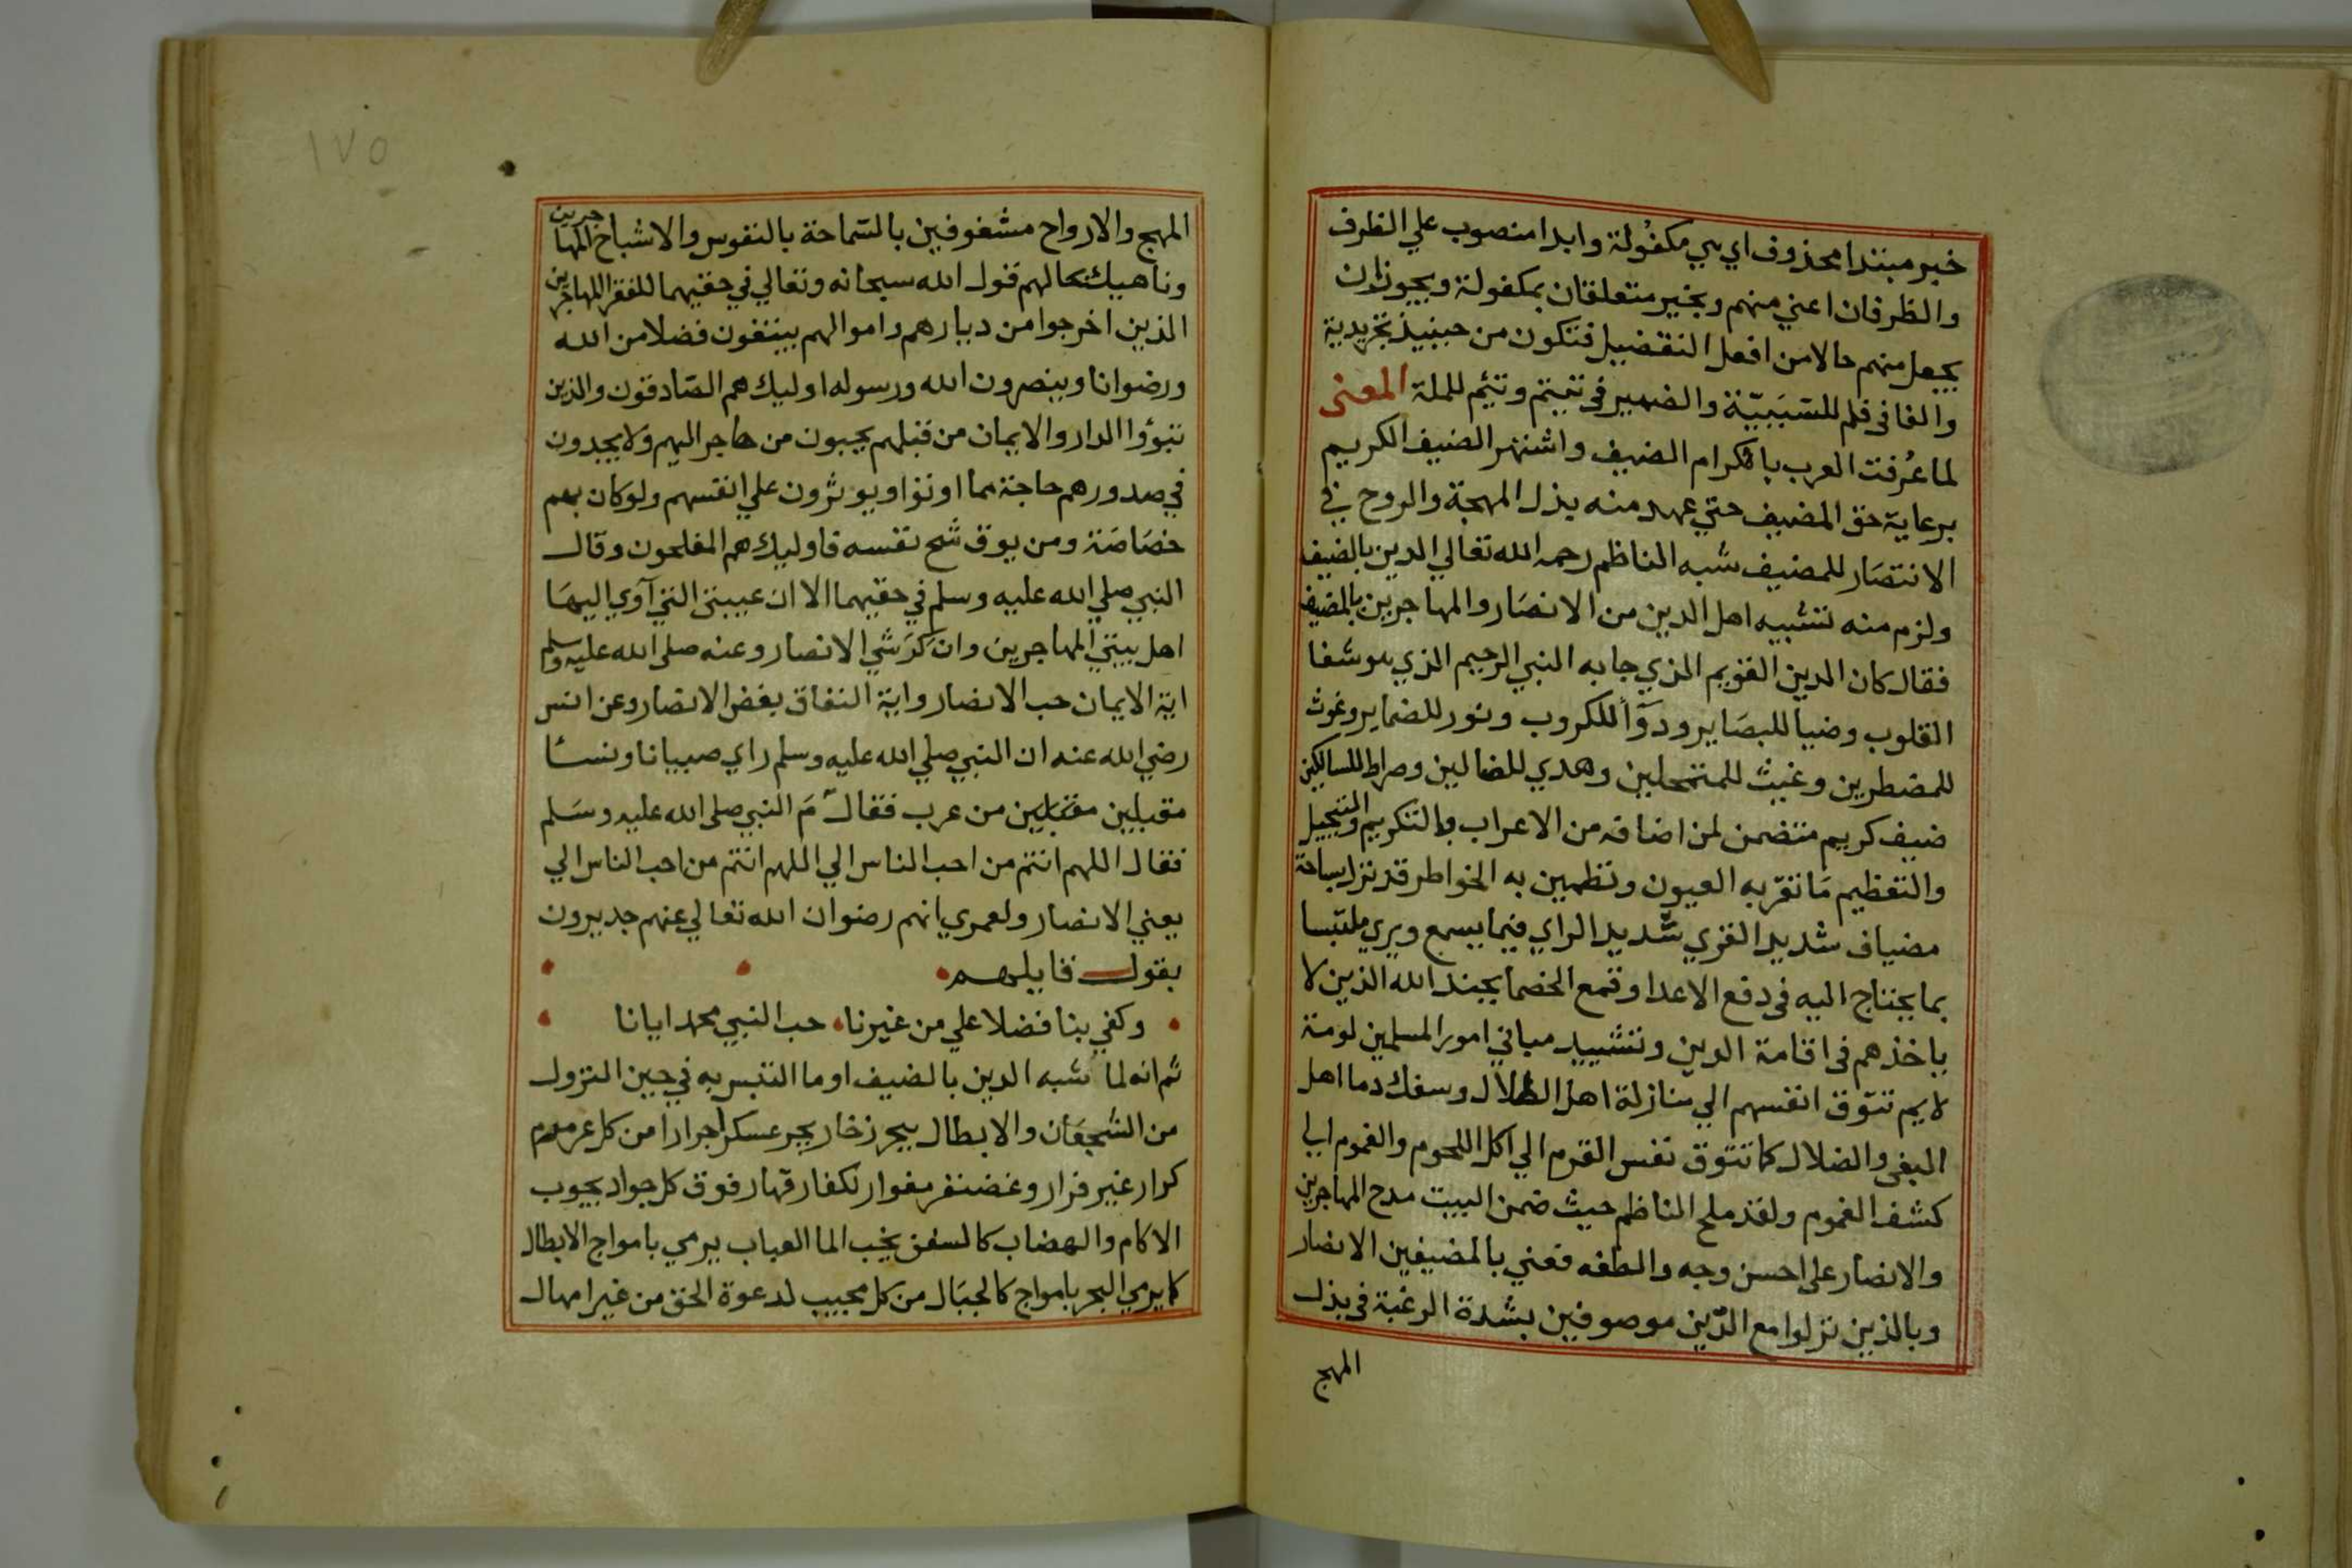 خبر مبتدا محذوف اي هي مكفُولة وابدا منصوب علي الظرف
والظرفان اعني منهم وبخير متعلقان بمكفولة ويجوز ان
يجعل منهم حالا من افعل التفضيل فتكون من حينيذ تجريدية
والفا فى فلم للسّبَبيّة والضمير فى تيتم وتئم للملة المعنى
لما عُرفت العرب باكرام الضيف واشتهر الضيف الكريم
برعاية حق المضيف حتي عهد منه بذل المهجة والروح في
الانتصَار للمضيف شبه الناظم رحمه الله تعالي الدين بالضيف
ولزم منه تشبيه اهل الدين من الانصَار والمهاجرين بالمضيف
فقال كان الدين القويم الذي جا به النبي الرحيم الذي هو شفا
القلوب وضيا للبصَاير ودوَآً للكروب ونور للضماير وغوث
للمضطرين وغيث للمتمحلين وهدي للضالين وصراط للسالكين
ضيف كريم متضمن لمن اضافه من الاعراب بالتكريم والتبجيل
والتعظيم مَا تقرّ به العيون وتطمين به الخواطر قد نزل بساحة
مضياف شديد القري سّديد الراي فيما يسمع ويري ملتبسا
بما يحتاج اليه فى دفع الاعدا وقمع الخصما بجند الله الذين لا
ياخذهم فى اقامة الدين وتشييد مباني امور المسلمين لومة
لايم تتوق انفسهم الي منازلة اهل الضلال وسفك دما اهل
البغي والضلال كما تتوق نفس القرم الي اكل اللحوم والغموم الي
كشف الغموم ولقد ملح الناظم حيث ضمن البيت مدح المهاجرين
والانصار على احسن وجه والطفه فعني بالمضيفين الانصار
وبالذين نزلوا مع الدّين موصوفين بشدة الرغبة فى بذل
المهج
١٧٥
المهج والارواح مشغوفين بالسّماحة بالنفوس والاشباح المهاجرين
وناهيك بحالهم قول الله سبحانه وتعالي في حقهما للفقرا المهاجرين
الذين اخرجوا من ديارهم واموالهم يبتغون فضلا من الله
ورضوانا وينصرون الله ورسوله اوليك هم الصّادقون والذين
تبوؤا الدار والايمان من قبلهم يحبون من هاجر اليهم ولا يجدون
في صدورهم حاجة مما اوتوا ويوثرون علي انفسهم ولو كان بهم
خصَاصَة ومن يوق شح نفسه فاوليك هم المفلحون وقال
النبي صلي الله عليه وسلم في حقهما الا ان عيبتي التي آوي اليهَا
اهل بيتي المهاجرين وان كَرَشي الانصار وعنه صلى الله عليه وسلم
اية الايمان حب الانصار واية النفاق بغض الانصار وعن انس
رضي الله عنه ان النبي صلي الله عليه وسلم راي صبيانا ونسا
مقبلين مقبلين من عرب فقال مَ النبي صلى الله عليه وسَلم
فقال اللهم انتم من احب الناس الي اللهم انتم من احب الناس الي
يعني الانصار ولعمري انهم رضوان الله تعالي عنهم جديرون
بقول قايلهم
وكفي بنا فضلا علي من غيرنا حب النبي محمد ايانا
ثم انه لما شبه الدين بالضيف اوما التبس به في حين النزول
من الشجعَان والابطال ببحر زخار يجر عسكرا جرارا من كل عرمرم
كرار غير فرار وغضنفر مغوار لكفار قهار فوق كل جواد يجوب
الاكام والهضاب كالسفن يخب الما العباب يرمي بامواج الابطال
كما يرمي البحر بامواج كالجبَال من كل مجيب لدعوة الحق من غير امهال